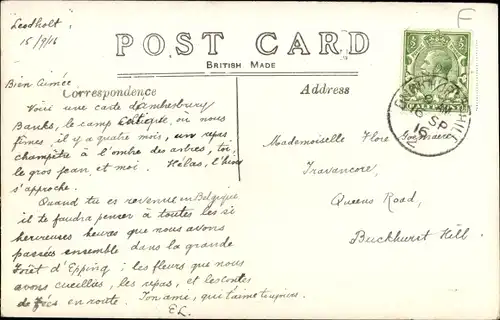 Leedholt
15/9/16
POST CARD
BRITISH MADE
Correspondence
Address
Bien Aimée
Voici une carte d'Ambesbury
Banks, le camp Celtique où nous
fîmes, il y a quatre mois, un repas
champêtre à l'ombre des arbres, toi,
le gros Jean et moi. Hélas, l'hiver
s'approche.
Quand tu es revenue en Belgique
il te faudra penser à toutes les si
hereuses heures que nous avons
passées ensemble dans la grande
Forêt d'Epping; les fleurs que nous
avons cueillies, les repas, et les contes
de fées en route. Ton ami, qui t'aime toujours.
EL.
Mademoiselle Flore
Travancore,
Queens Road,
Buckhurst Hill.
SP
16
F